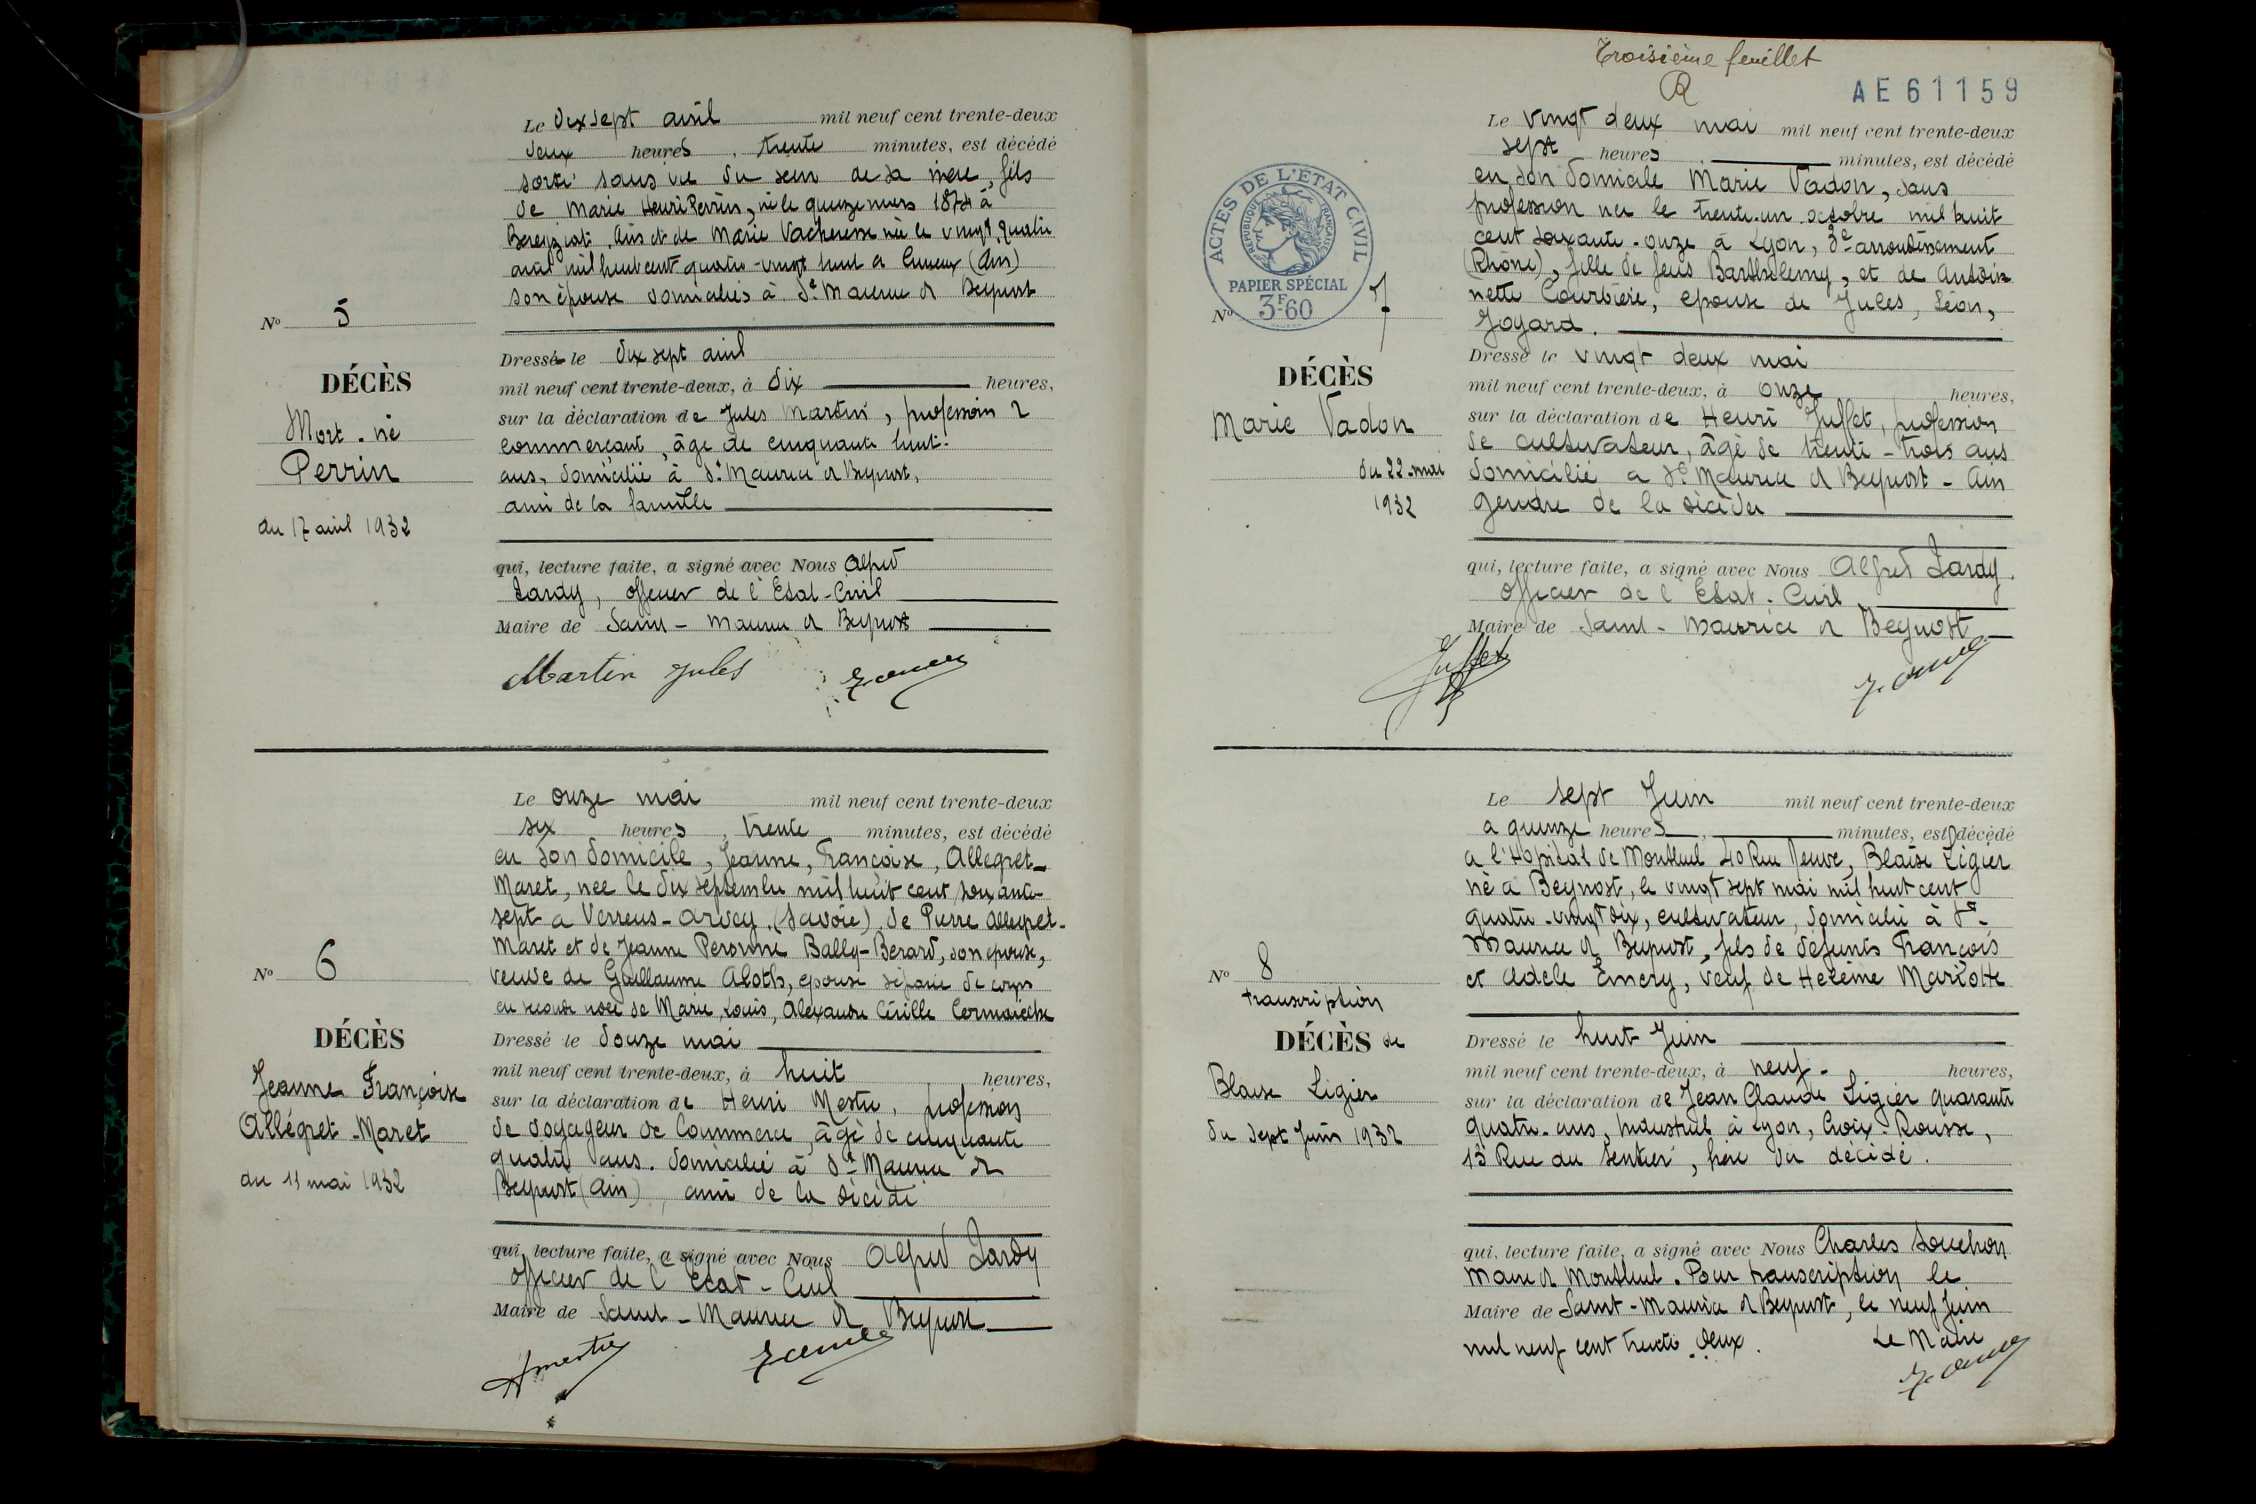 Le dix sept avril mil neuf cent trente-deux
deux heures, trente minutes, est décédé
sorti sans vie du sein de sa mère, fils
de Marie Henri Perrin, né le quinze mars 1874 à
Bereyziat, Ain et de Marie Vacheresse née le vingt quatre
avril mil huit cent quatre-vingt huit à (Ain)
son épouse domiciliés à St Maurice d Beynost
N° 5
DÉCÈS
Mort-né
Perrin
du 17 avril 1932
Dressé le dix sept avril
mil neuf cent trente-deux, à dix heures,
sur la déclaration de Jules Martin, profession d
commerçant, âgé de cinquante huit
ans, domicilié à St Maurice d Beynost,
ami de la famille
qui, lecture faite, a signé avec Nous Alfred
Jardy, officier de l'Etat-Civil
Maire de Saint-Maurice d Beynost
Martin Jules
Le onze mai mil neuf cent trente-deux
six heures, trente minutes, est décédé
en son domicile, Jeanne, Françoise, Allegret-
Maret, née le dix septembre mil huit cent soixante-
sept à Verrens-Arvey (Savoie) de Pierre Allegret-
Maret et de Jeanne Peronne Bally-Berard, son épouse,
veuve de Guillaume Aloth, épouse séparée de corps
en seconde noce de Marie, Louis, Alexandre Cirille
N° 6
DÉCÈS
Jeanne Françoise
Allégret-Maret
du 11 mai 1932
Dressé le douze mai
mil neuf cent trente-deux, à huit heures,
sur la déclaration de Henri Mestre, profession
de voyageur de Commerce, âgé de cinquante
quatre ans. domicilié à St Maurice d
Beynost (Ain), ami de la décédée
qui, lecture faite, a signé avec Nous Alfred Jardy
officier de l'Etat-Civil
Maire de Saint-Maurice d Beynost
Hmestre
Troisième feuillet
AE61159
Le vingt deux mai mil neuf cent trente-deux
sept heures, minutes, est décédé
en son domicile Marie Vadon, sans
profession née le trente-un octobre mil huit
cent soixante-onze à Lyon, 3e arrondissement
(Rhône), fille de feus Barthélemy, et de Antoi
nette Courbière, épouse de Jules, Léon,
Jogard.
ACTES DE L'ÉTAT CIVIL
RÉPUBLIQUE FRANÇAISE
PAPIER SPÉCIAL
3F60
N° 7
DÉCÈS
Marie Vadon
du 22 mai
1932
Dressé le vingt deux mai
mil neuf cent trente-deux, à onze heures,
sur la déclaration de Henri Juffet, profession
de cultivateur, âgé de trente-trois ans
domicilié à St Maurice d Beynost-Ain
gendre de la décédée
qui, lecture faite, a signé avec Nous Alfred Jardy.
officier de l Etat-Civil
Maire de Saint-Maurice d Beynost
Juffet
Le sept Juin mil neuf cent trente-deux
à quinze heures, minutes, est décédé
à l'Hôpital de Montluel 40 Rue Neuve, Blaise Ligier
né à Beynost, le vingt sept mai mil huit cent
quatre-vingt dix, cultivateur, domicilié à St-
Maurice d Beynost, fils de défunts François
et Adèle Emery, veuf de Hélène Mariotte
N° 8
transcription
DÉCÈS de
Blaise Ligier
du sept Juin 1932
Dressé le huit Juin
mil neuf cent trente-deux, à neuf heures,
sur la déclaration de Jean Claude Ligier quarante
quatre ans, Industriel à Lyon, Croix-Rousse,
13 Rue du Sentier, frère du décédé.
qui, lecture faite, a signé avec Nous Charles Souchon
Maire d Montluel. Pour transcription le
Maire de Saint-Maurice d Beynost, le neuf Juin
mil neuf cent trente deux. Le Maire